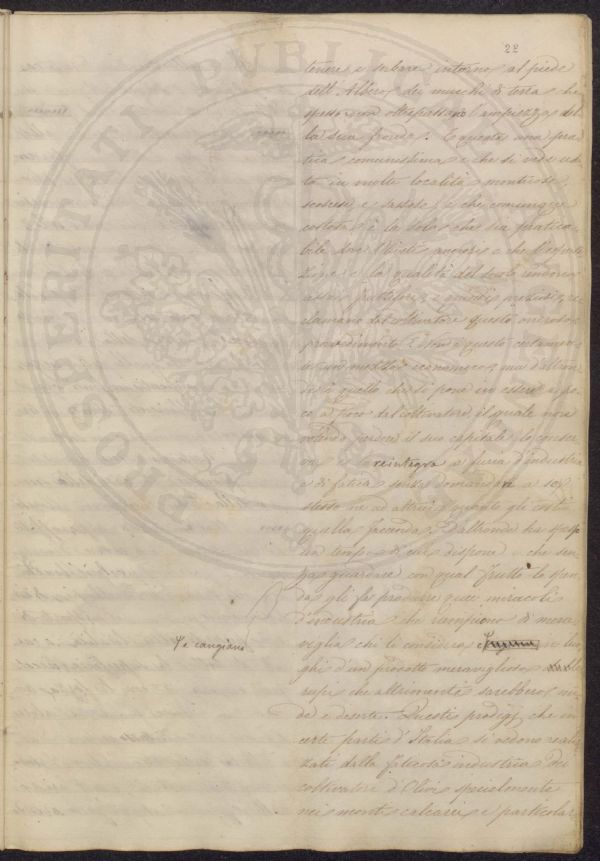 22
tenere e serbare intorno al piede
dell'Albero dei mucchi di terra che
spesso non oltrepassano l'ampiezza del
la sua fronda. E questa una pra
tica comunissima e che si vede usa
ta in molte località montuose,
scoscese, e sassose, e che comunque
costosa, è la sola che sia pratica
bile dove l'Uliveti ancora e che l'esposi
zione e la qualità del suolo rendono
assai fruttifere, e quindi preziose, re
clamano dal coltivatore questo oneroso
provvedimento. E non è questo certamen
te un metodo economico; ma d'altron
de è quello che si pone in essere a po
co a poco dal coltivatore, il quale non
volendo perdere il suo capitale, lo conser
va e lo reintegra a furia d'industria
e di fatica senza domandare a se
stesso ne ad altrui quanto gli costi
quella faccenda. D'altronde ha spesso
un tempo di cui dispone che sen
za guardare con qual frutto lo spen
da gli fa produrre quei miracoli
d'industria che riempiono di mera
viglia chi li considera e
Se cangiano
in luo
ghi d'un prodotto meraviglioso
rupi che altrimenti sarebbero nu
de e deserte. Questi prodigj che in
certe parti d'Italia si vedono realiz
zati dalla faticosa industria dei
coltivatori d'Olivi specialmente
nei monti calcarei e particolar